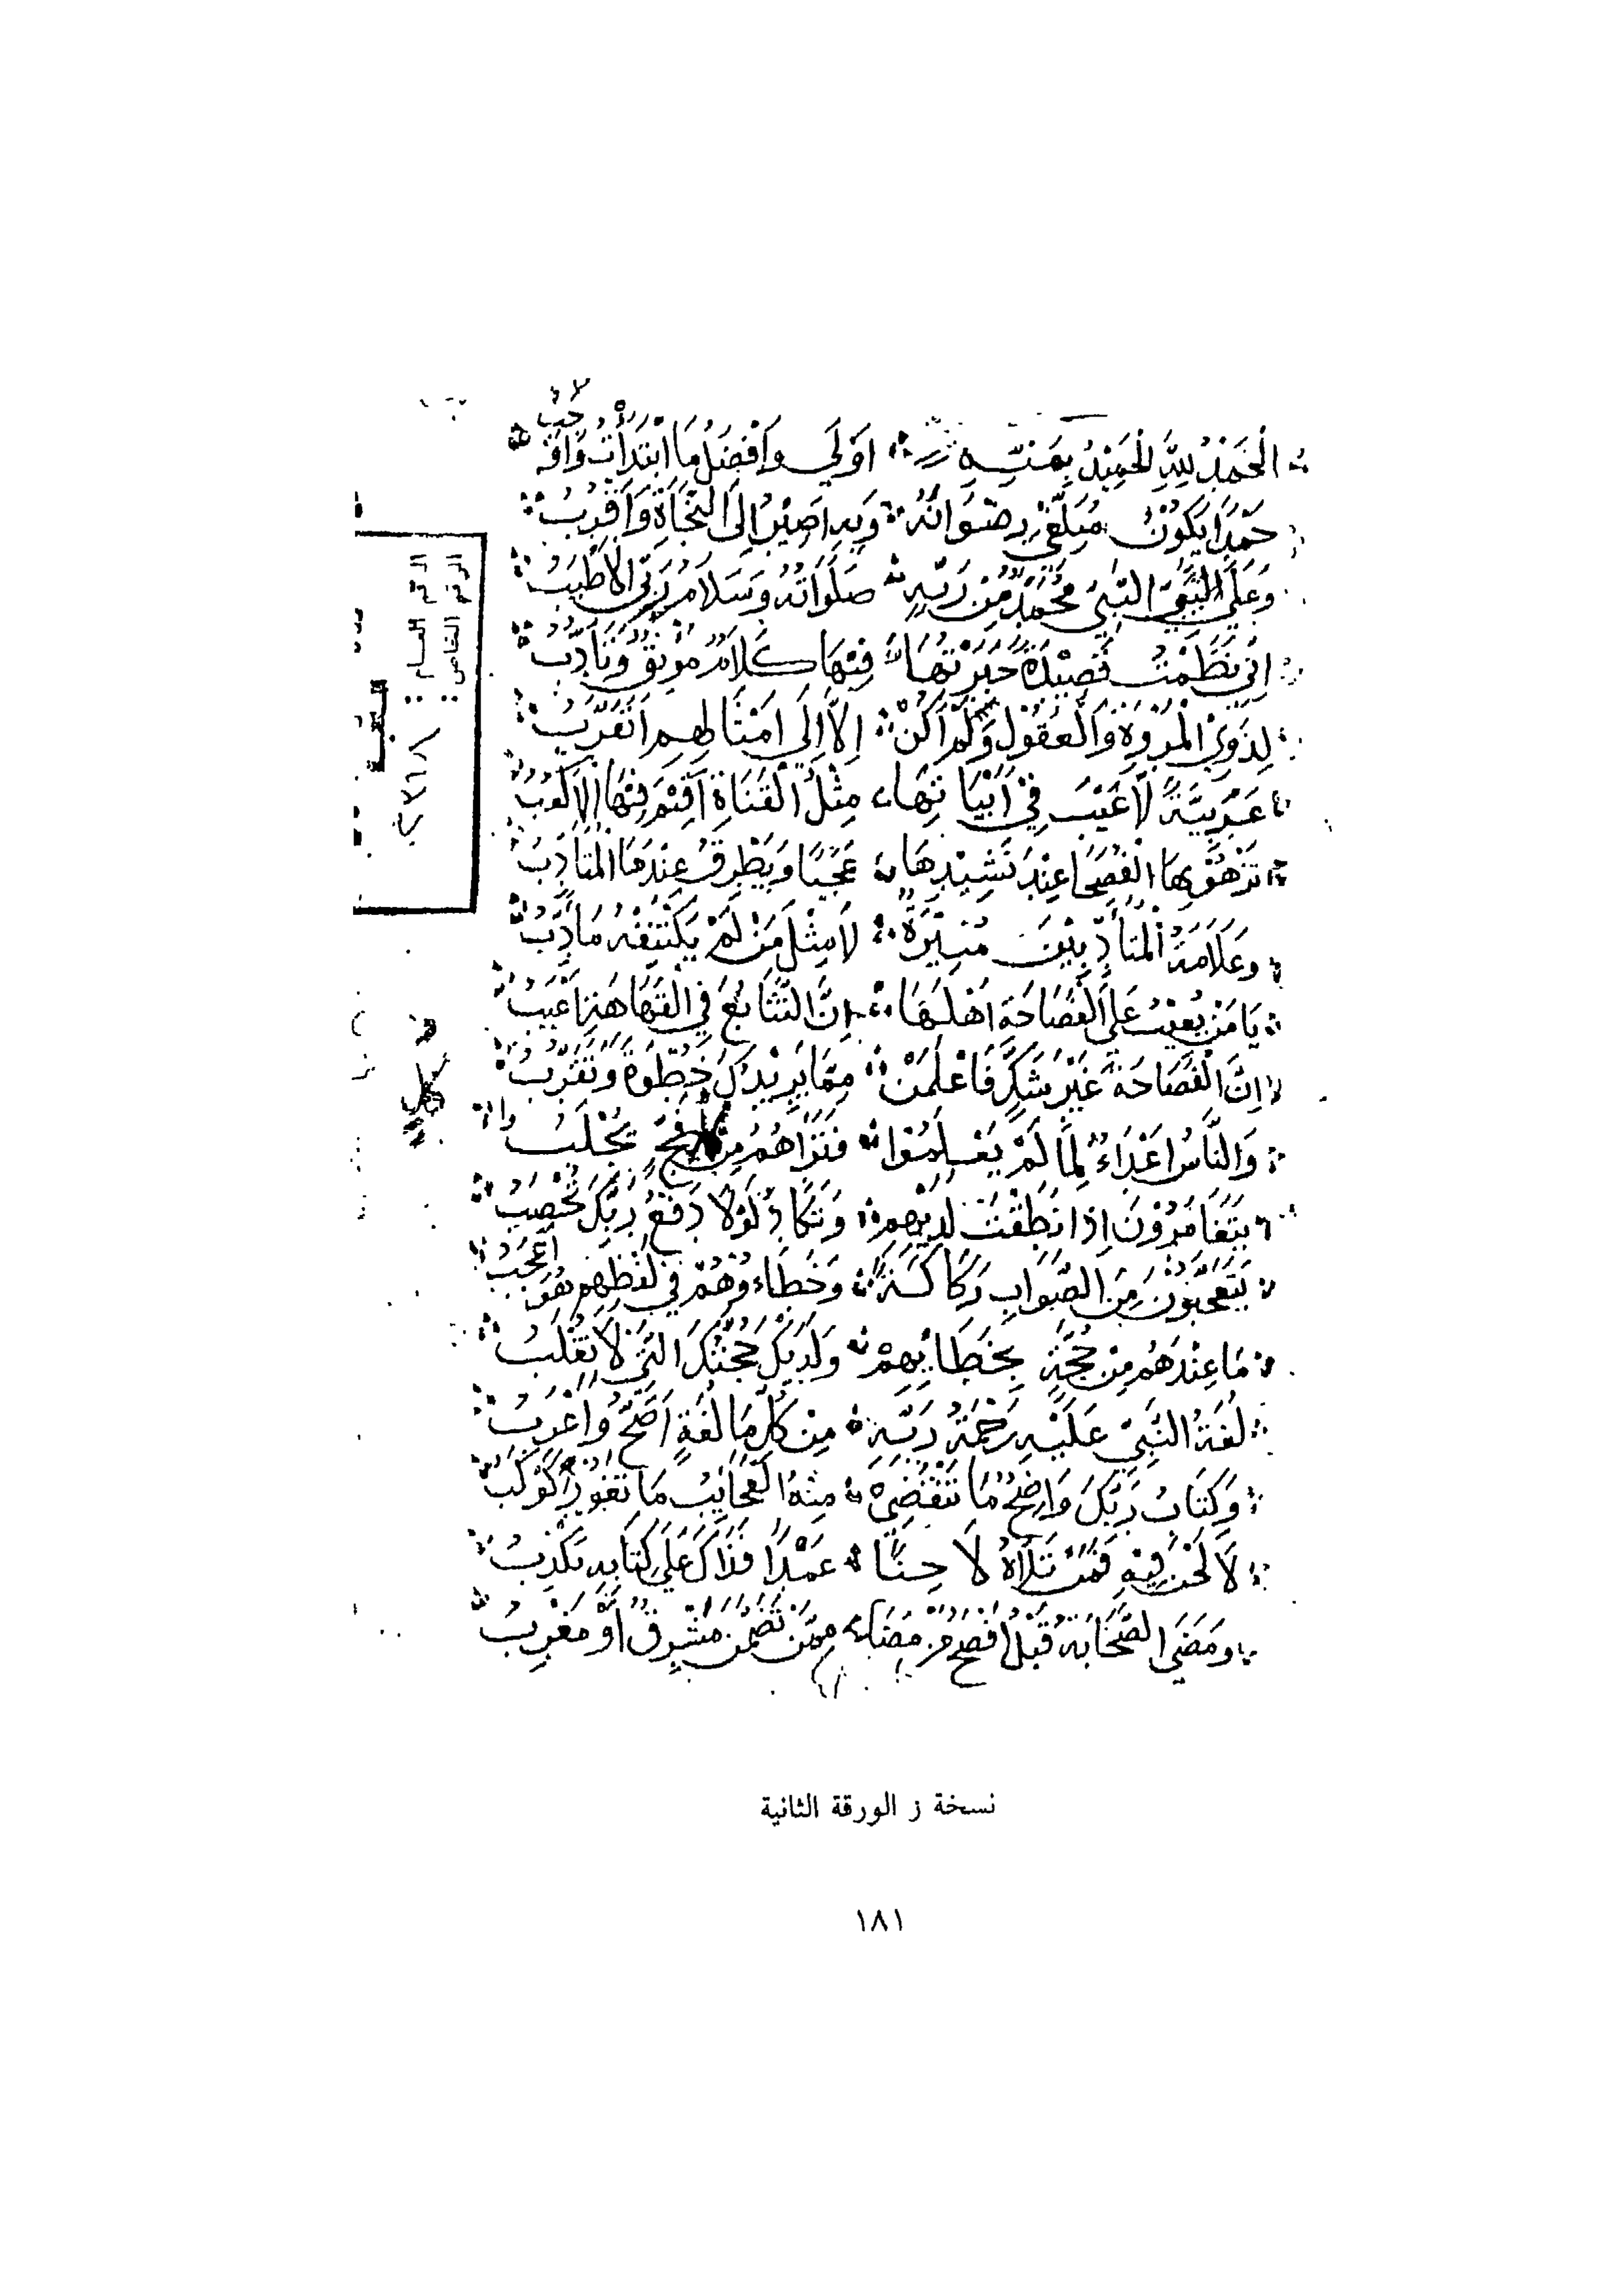 الْحَمْدُ لِلَّهِ الْحَمِيدِ بِمَنِّهِ أَوْلَى وَأَفْضَلُ مَا ابْتَدَأْتُ وَأَوْجَبُ
حَمْدًا يَكُونُ مُبَلِّغِي رِضْوَانَهُ وَبِهِ اَصِيْرُ اِلَى النَّجَاةِ وَاَقْرُبُ
وَعَلَى النَّبِيِّ مُحَمَّدٍ مِنْ رَبِّهِ صَلَوَاتُهُ وَسَلَامُ رَبِّي الْاَطْيَبُ
اِنِّي نَظَمْتُ قَصِيْدَةً حَبَّرْتُهَا فِيْهَا كَلَامٌ مُوْنِقٌ وَتَأَدُّبُ
لِذَوِيْ الْمُرُوْةِ وَالْعُقُوْلِ وَلَمْ اَكُنْ اِلَّا اِلَى اَمْثَالِهِمْ اَتَقَرَّبُ
عَرَبِيَّةً لَا عَيْبَ فِيْ اَبْيَاتِهَا مِثْلَ الْقَنَاةِ اُقِيْمَ فِيْهَا الْاَكْعُبُ
تَزْهُوْ بِهَا الْفُصَحَا عِنْدَ نَشِيْدِهَا عَجَبًا وَيُطْرِقُ عِنْدَهَا الْمُتَأَدِّبُ
وَعَلَامَةُ الْمُتَأَدِّبِيْنَ مُنِيْرَةٌ لَا مِثْلَ مَنْ لَمْ يَكْتَنِفْهُ مَأْدَبُ
يَا مَنْ يُعِيْبُ عَلَى الْفَصَاحَةِ اَهْلَهَا اِنَّ التَّتَابُعَ فِي الْفَهَاهَةِ اَعْيَبُ
اِنَّ الْفَصَاحَةَ غَيْرَ شَكٍّ فَاعْلَمَنْ مِمَّا يَزِيْدُكَ حُظْوَةً وَتُقَرِّبُ
وَالنَّاسُ اَعْدَاءٌ لِمَا لَمْ يَعْلَمُوْا فَتَرَاهُمُ مِنْ كُلِّ فَجٍّ تَجْلِبُ
يَتَغَامَزُوْنَ اِذَا نَطَقْتَ لَدَيْهِمُ وَتَكَادُ لَوْلَا دَفْعُ رَبِّكَ تُحْصَبُ
يَتَعَجَّبُوْنَ مِنَ الصَّوَابِ رَكَاكَةً وَخَطَاءُوْهُمْ فِيْ لَفْظِهِمْ هُوَ اَعْجَبُ
مَا عِنْدَهُمْ مِنْ حُجَّةٍ بِخَطَائِهِمْ وَلَدَيْكَ حُجَّتُكَ الَّتِيْ لَا تُغْلَبُ
لُغَةُ النَّبِيِّ عَلَيْهِ رَحْمَةُ رَبِّهِ مِنْ كُلِّ مَا لُغَةٍ اَصَحُّ وَاَعْرَبُ
وَكِتَابُ رَبِّكَ وَاضِحٌ مَا تَنْقَضِيْ مِنْهُ الْعَجَايِبُ مَا تَغَوَّرَ كَوْكَبُ
لَا لَحْنَ فِيْهِ فَمَنْ تَلَاهُ لَاحِنًا عَمْدًا فَذَاكَ عَلَى كِتَابِهِ يَكْذِبُ
وَمَضَى الصَّحَابَةُ قَبْلُ اَفْصَحَ مَنْ مَضَا مِمَّنْ تَضَمَّنَ مَشْرِقٌ اَوْ مَغْرِبُ
الرقم العام :
الرقم الخاص :
نسخة ز الورقة الثانية
١٨١